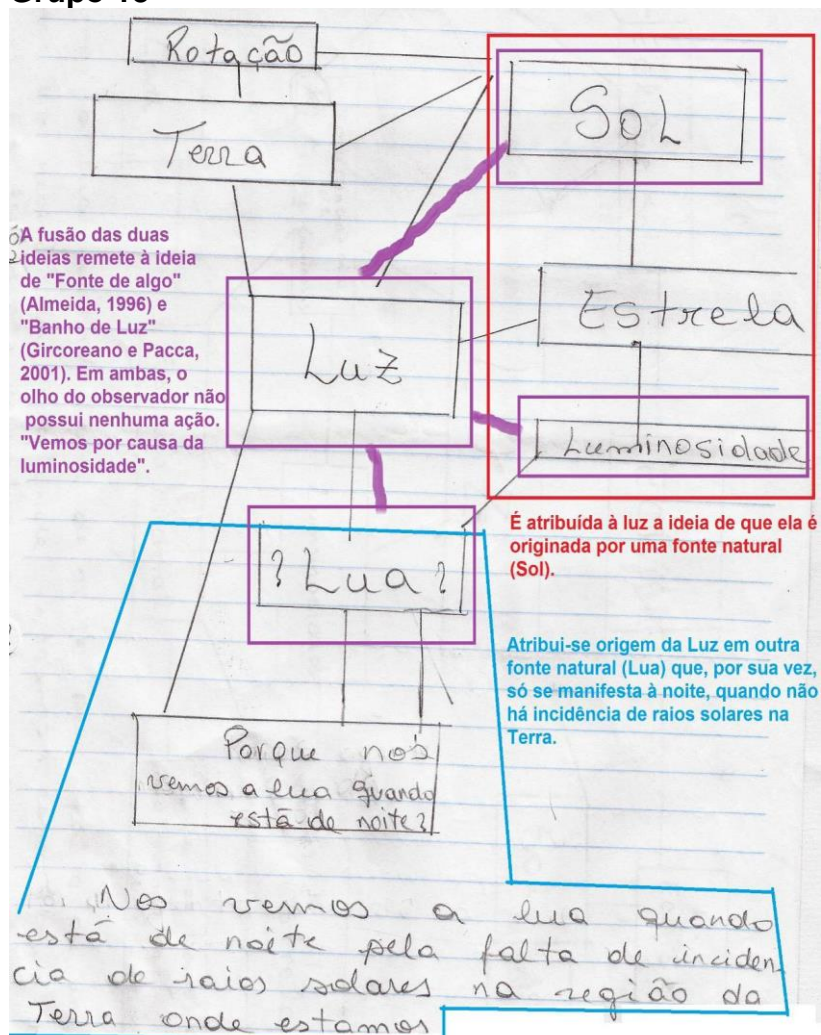 Rotação
Terra
SoL
A fusão das duas
ideias remete à ideia
de "Fonte de algo"
(Almeida, 1996) e
"Banho de Luz"
(Gircoreano e Pacca,
2001). Em ambas, o
olho do observador não
possui nenhuma ação.
"Vemos por causa da
luminosidade".
Luz
Estrela
Luminosidade
É atribuída à luz a ideia de que ela é
originada por uma fonte natural
(Sol).
? Lua ?
Atribui-se origem da Luz em outra
fonte natural (Lua) que, por sua vez,
só se manifesta à noite, quando não
há incidência de raios solares na
Terra.
Porque nós
vemos a lua quando
está de noite?
Nos vemos a lua quando
está de noite pela falta de inciden
cia de raios solares na região da
Terra onde estamos